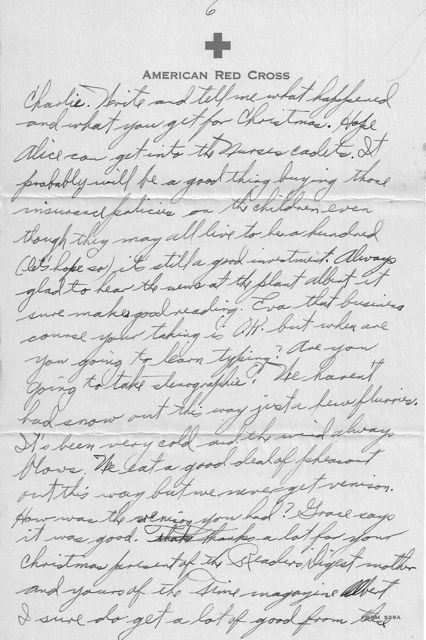 6
AMERICAN RED CROSS
Charlie. Write and tell me what happened
and what you get for Christmas. Hope
Alice can get into the Nurses cadets. It
probably will be a good thing buying those
insurance policies on the children even
though they may all live to be a hundred
(let's hope so) it's still a good investment. Always
glad to hear the news at the plant Albert it
sure makes good reading. Eva that business
course your taking is O.K. but when are
you going to learn typing? Are you
going to take stenographie? We haven't
had snow out this way just a few flurries.
It's been very cold and the wind always
blows. We eat a good deal of pheasant
out this way but we never get venison.
How was the venison you had? Grace says
it was good. Thanks a lot for your
Christmas present of the Readers Digest mother
and yours of the Time magazine Albert
I sure do get a lot of good from the
FORM 539A